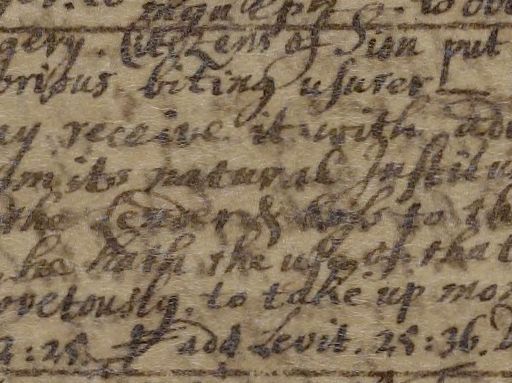 gery. Citizens of Sion put
biting usurer
receive it with
its natural
the Lenders to th
he hath the use of that
ovetously. to take up mon
add Levit. 25:36.